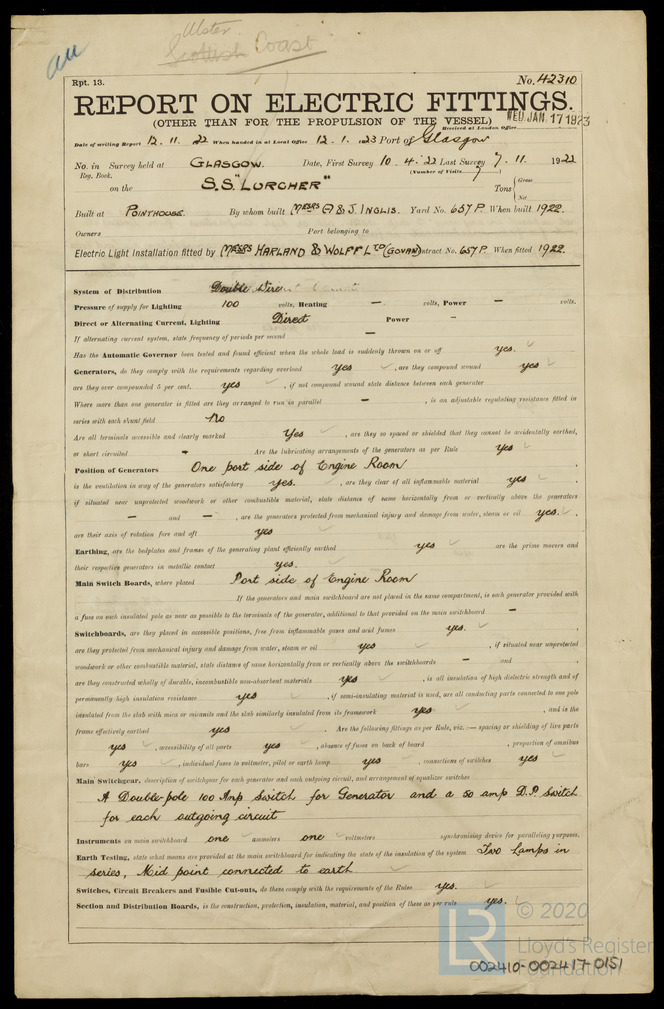 Ulster
Scottish Coast
au
Rpt. 13.
No. 42310
REPORT ON ELECTRIC FITTINGS.
(OTHER THAN FOR THE PROPULSION OF THE VESSEL)
Received at London Office WED. JAN. 17 1923
Date of writing Report 12. 11. 22 When handed in at Local Office 12. 1. 1923 Port of Glasgow
No. in Survey held at GLASGOW. Date, First Survey 10. 4. 22 Last Survey 7. 11. 1922
Reg. Book. (Number of Visits 7)
on the S.S "LURCHER" Tons { Gross
Net
Built at POINTHOUSE. By whom built MESSRS A & J. INGLIS. Yard No. 657 P. When built 1922.
Owners Port belonging to
Electric Light Installation fitted by MESSRS HARLAND & WOLFF LTD (GOVAN) Contract No. 657 P. When fitted 1922.
System of Distribution Double Wire
Pressure of supply for Lighting 100 volts, Heating — volts, Power — volts.
Direct or Alternating Current, Lighting Direct Power -
If alternating current system, state frequency of periods per second —
Has the Automatic Governor been tested and found efficient when the whole load is suddenly thrown on or off yes.
Generators, do they comply with the requirements regarding overload yes, are they compound wound yes
are they over compounded 5 per cent. yes, if not compound wound state distance between each generator
Where more than one generator is fitted are they arranged to run in parallel —, is an adjustable regulating resistance fitted in
series with each shunt field No
Are all terminals accessible and clearly marked Yes, are they so spaced or shielded that they cannot be accidentally earthed,
or short circuited - Are the lubricating arrangements of the generators as per Rule Yes
Position of Generators One port side of Engine Room
is the ventilation in way of the generators satisfactory yes., are they clear of all inflammable material yes,
if situated near unprotected woodwork or other combustible material, state distance of same horizontally from or vertically above the generators
— and —, are the generators protected from mechanical injury and damage from water, steam or oil yes.,
are their axis of rotation fore and aft yes
Earthing, are the bedplates and frames of the generating plant efficiently earthed yes are the prime movers and
their respective generators in metallic contact yes.
Main Switch Boards, where placed Port side of Engine Room
If the generators and main switchboard are not placed in the same compartment, is each generator provided with
a fuse on each insulated pole as near as possible to the terminals of the generator, additional to that provided on the main switchboard —
Switchboards, are they placed in accessible positions, free from inflammable gases and acid fumes yes.
are they protected from mechanical injury and damage from water, steam or oil yes, if situated near unprotected
woodwork or other combustible material, state distance of same horizontally from or vertically above the switchboards — and
are they constructed wholly of durable, incombustible non-absorbent materials yes, is all insulation of high dielectric strength and of
permanently high insulation resistance yes, if semi-insulating material is used, are all conducting parts connected to one pole
insulated from the slab with mica or micanite and the slab similarly insulated from its framework yes, and is the
frame effectively earthed yes. Are the following fittings as per Rule, viz.:— spacing or shielding of live parts
yes, accessibility of all parts yes, absence of fuses on back of board, proportion of omnibus
bars yes, individual fuses to voltmeter, pilot or earth lamp yes, connections of switches yes
Main Switchgear, description of switchgear for each generator and each outgoing circuit, and arrangement of equalizer switches
A Double-pole 100 Amp Switch for Generator and a 50 amp D.P. Switch
for each outgoing circuit
Instruments on main switchboard one ammeters one voltmeters synchronising device for paralleling purposes.
Earth Testing, state what means are provided at the main switchboard for indicating the state of the insulation of the system Two Lamps in
series, Mid point connected to earth
Switches, Circuit Breakers and Fusible Cut-outs, do these comply with the requirements of the Rules yes.
Section and Distribution Boards, is the construction, protection, insulation, material, and position of these as per rule yes.
LR © 2020
Lloyd's Register
Foundation
002410-002417-0151